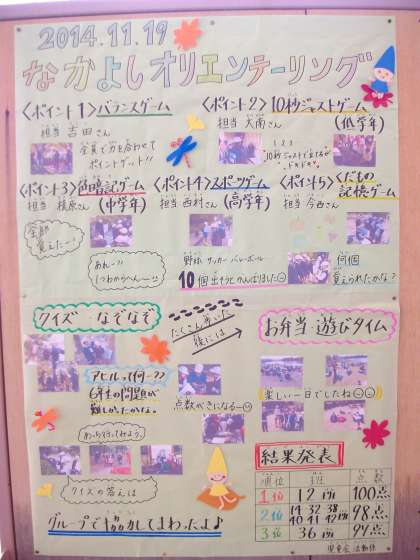 2014.11.19
なかよしオリエンテーリング
〈ポイント1〉バランスゲーム
担当 吉田さん
全員で力を合わせて
ポイントゲット!!
〈ポイント2〉10秒ジャストゲーム
担当 大南さん (低学年)
1 2 3
10秒ジャストで立てるが
ドキドキ
〈ポイント3〉色暗記ゲーム
担当 横原さん (中学年)
全部
覚えたー!
あれー?
1つわからへんー!
〈ポイント4〉スポーツゲーム
担当 西村さん (高学年)
野球 サッカー バレーボール
10個出そうとがんばりました
〈ポイント5〉くだもの
記憶ゲーム
担当 今西さん
何個
覚えられたかな?
クイズ・なぞなぞ
アヒルって何ー??
6年生の問題が
難しかったかな。
たくさん歩いた
後には
点数がきになるー
お弁当 遊びタイム
楽しい一日でしたね
クイズの答えは
グループで協力してまわったよ♪
結果発表
順位 班 点数
1位 12班 100点
2位 14 32 38 40 41 42班 98点
3位 36班 94点
児童会 活動係